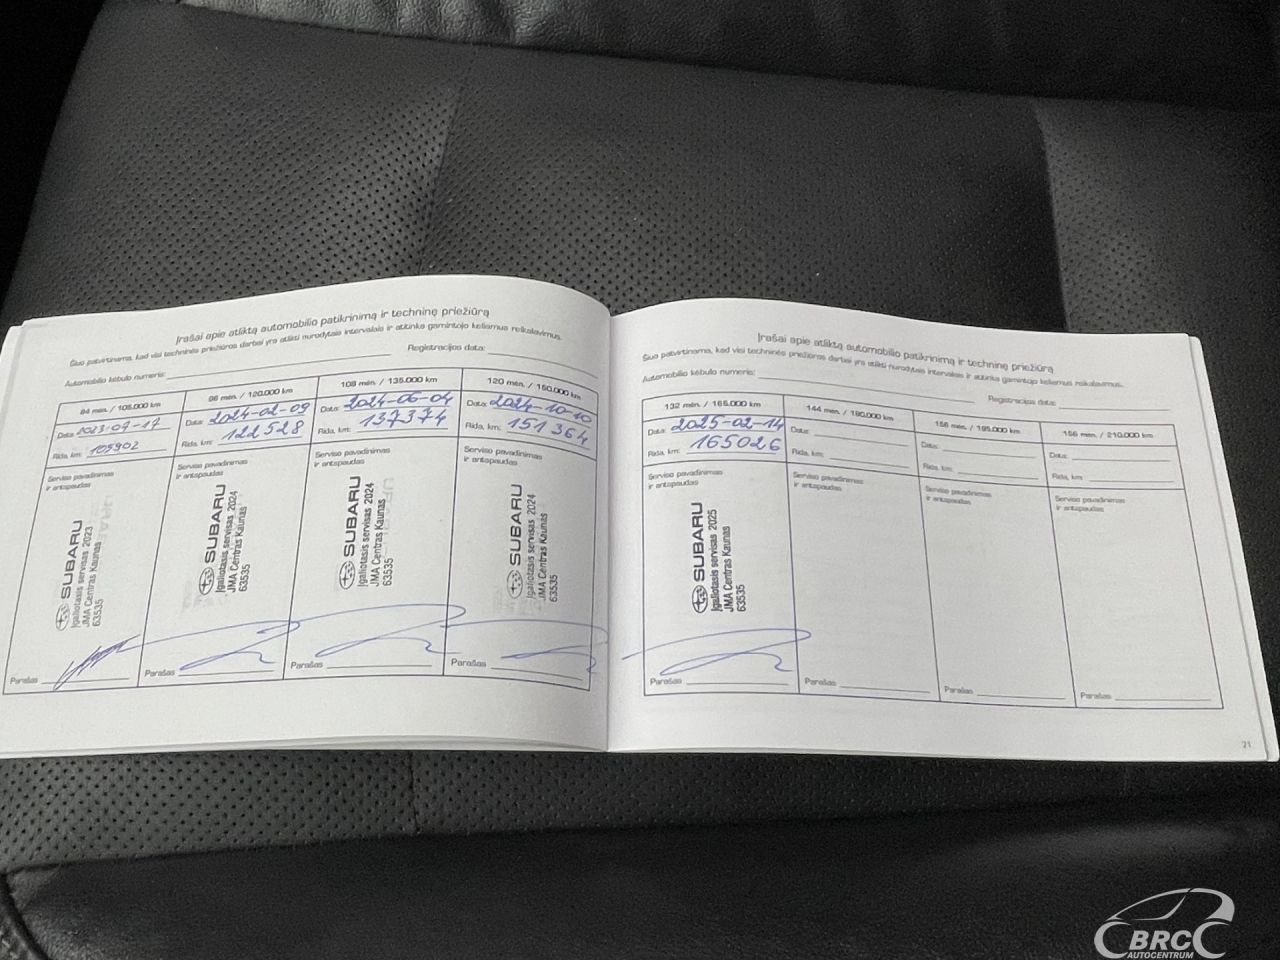 Įrašai apie atliktą automobilio patikrinimą ir techninę priežiūrą
Šiuo patvirtinama, kad visi techninės priežiūros darbai yra atlikti nurodytais intervalais ir atitinka gamintojo keliamus reikalavimus.
Automobilio kėbulo numeris: Registracijos data:
84 mėn. / 105.000 km
Data: 2023-07-17
Rida, km: 105902
Serviso pavadinimas
ir antspaudas
SUBARU
Įgaliotasis servisas 2023
JMA Centras Kaunas
63535
Parašas
96 mėn. / 120.000 km
Data: 2024-02-09
Rida, km: 122528
Serviso pavadinimas
ir antspaudas
SUBARU
Įgaliotasis servisas 2024
JMA Centras Kaunas
63535
Parašas
108 mėn. / 135.000 km
Data: 2024-06-04
Rida, km: 137374
Serviso pavadinimas
ir antspaudas
SUBARU
Įgaliotasis servisas 2024
JMA Centras Kaunas
63535
Parašas
120 mėn. / 150.000 km
Data: 2024-10-10
Rida, km: 151364
Serviso pavadinimas
ir antspaudas
SUBARU
Įgaliotasis servisas 2024
JMA Centras Kaunas
63535
Parašas
Įrašai apie atliktą automobilio patikrinimą ir techninę priežiūrą
Šiuo patvirtinama, kad visi techninės priežiūros darbai yra atlikti nurodytais intervalais ir atitinka gamintojo keliamus reikalavimus.
Automobilio kėbulo numeris: Registracijos data:
132 mėn. / 165.000 km
Data: 2025-02-14
Rida, km: 165026
Serviso pavadinimas
ir antspaudas
SUBARU
Įgaliotasis servisas 2025
JMA Centras Kaunas
63535
Parašas
144 mėn. / 180.000 km
Data:
Rida, km:
Serviso pavadinimas
ir antspaudas
Parašas
156 mėn. / 195.000 km
Data:
Rida, km:
Serviso pavadinimas
ir antspaudas
Parašas
156 mėn. / 210.000 km
Data:
Rida, km:
Serviso pavadinimas
ir antspaudas
Parašas
21
BRC
AUTOCENTRUM